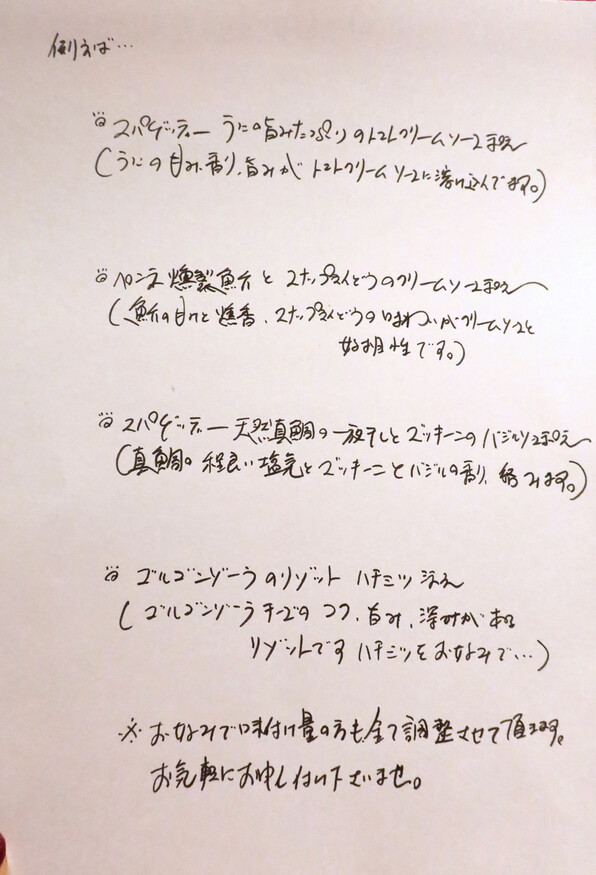 例えば…
スパゲッティー うにの旨みたっぷりのトマトクリームソース和え
(うにの甘み、香り、旨みが トマトクリームソースに溶け込んでます。)
ペンネ 燻製魚介と スナップえんどうのクリームソース和え
(魚介の甘みと燻香、スナップえんどうの味わいがクリームソースと
好相性です。)
スパゲッティー 天然真鯛の一夜干しとズッキーニのバジルソース和え
(真鯛の程良い塩気とズッキーニとバジルの香り、絡みます。)
ゴルゴンゾーラのリゾット ハチミツ添え
(ゴルゴンゾーラチーズの コク、旨み、深みがある
リゾットです ハチミツをお好みで…)
※ お好みで味付け量の方も、全て調整させて頂きます。
お気軽にお申し付け下さいませ。